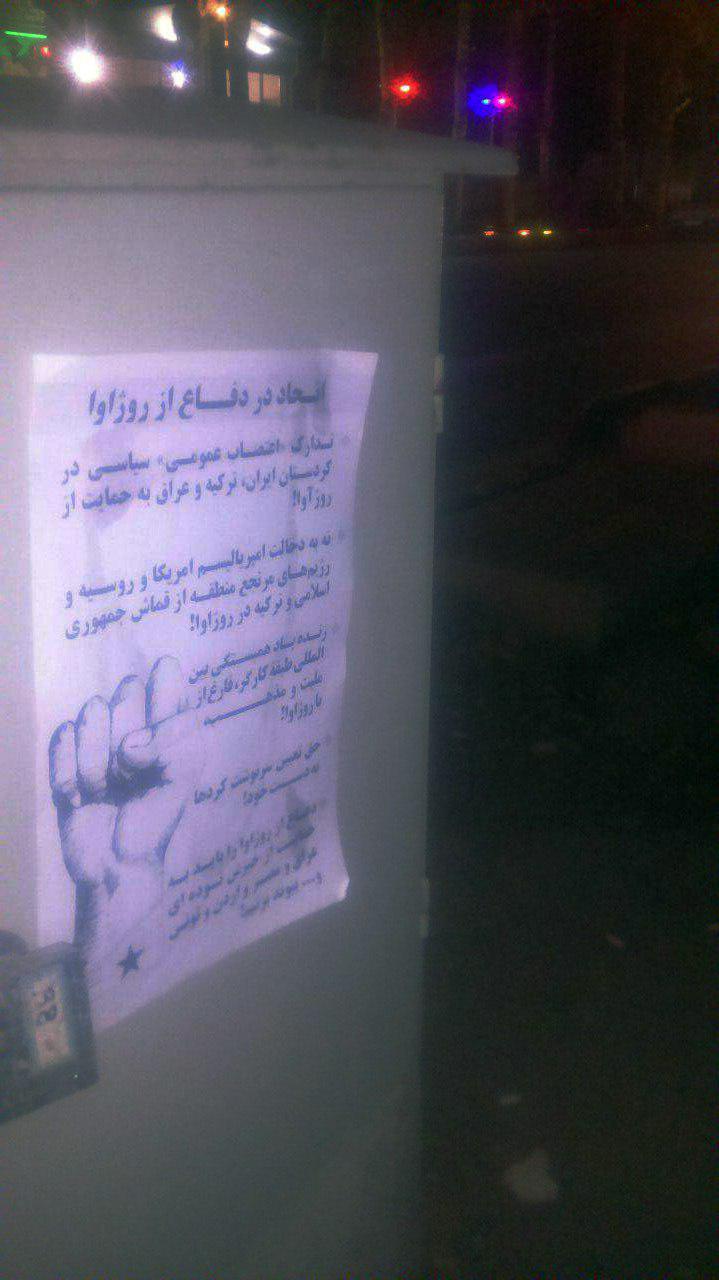 اتحاد در دفاع از روژاوا
تدارک «اعتصاب عمومی» سیاسی در
کردستان ایران، ترکیه و عراق به حمایت از
روژآوا!
نه به دخالت امپریالیسم امریکا و روسیه و
رژیم‌های مرتجع منطقه از قماش جمهوری
اسلامی و ترکیه در روژاوا!
زنده باد همبستگی بین
المللی طبقه کارگر، فارغ از
ملیت و مذهب،
با روژاوا!
حق تعیین سرنوشت کردها
به دست خود!
دفاع از روژاوا را باید به
حمایت از خیزش توده ای
عراق و مصر و اردن و تونس
و... پیوند بزنیم!